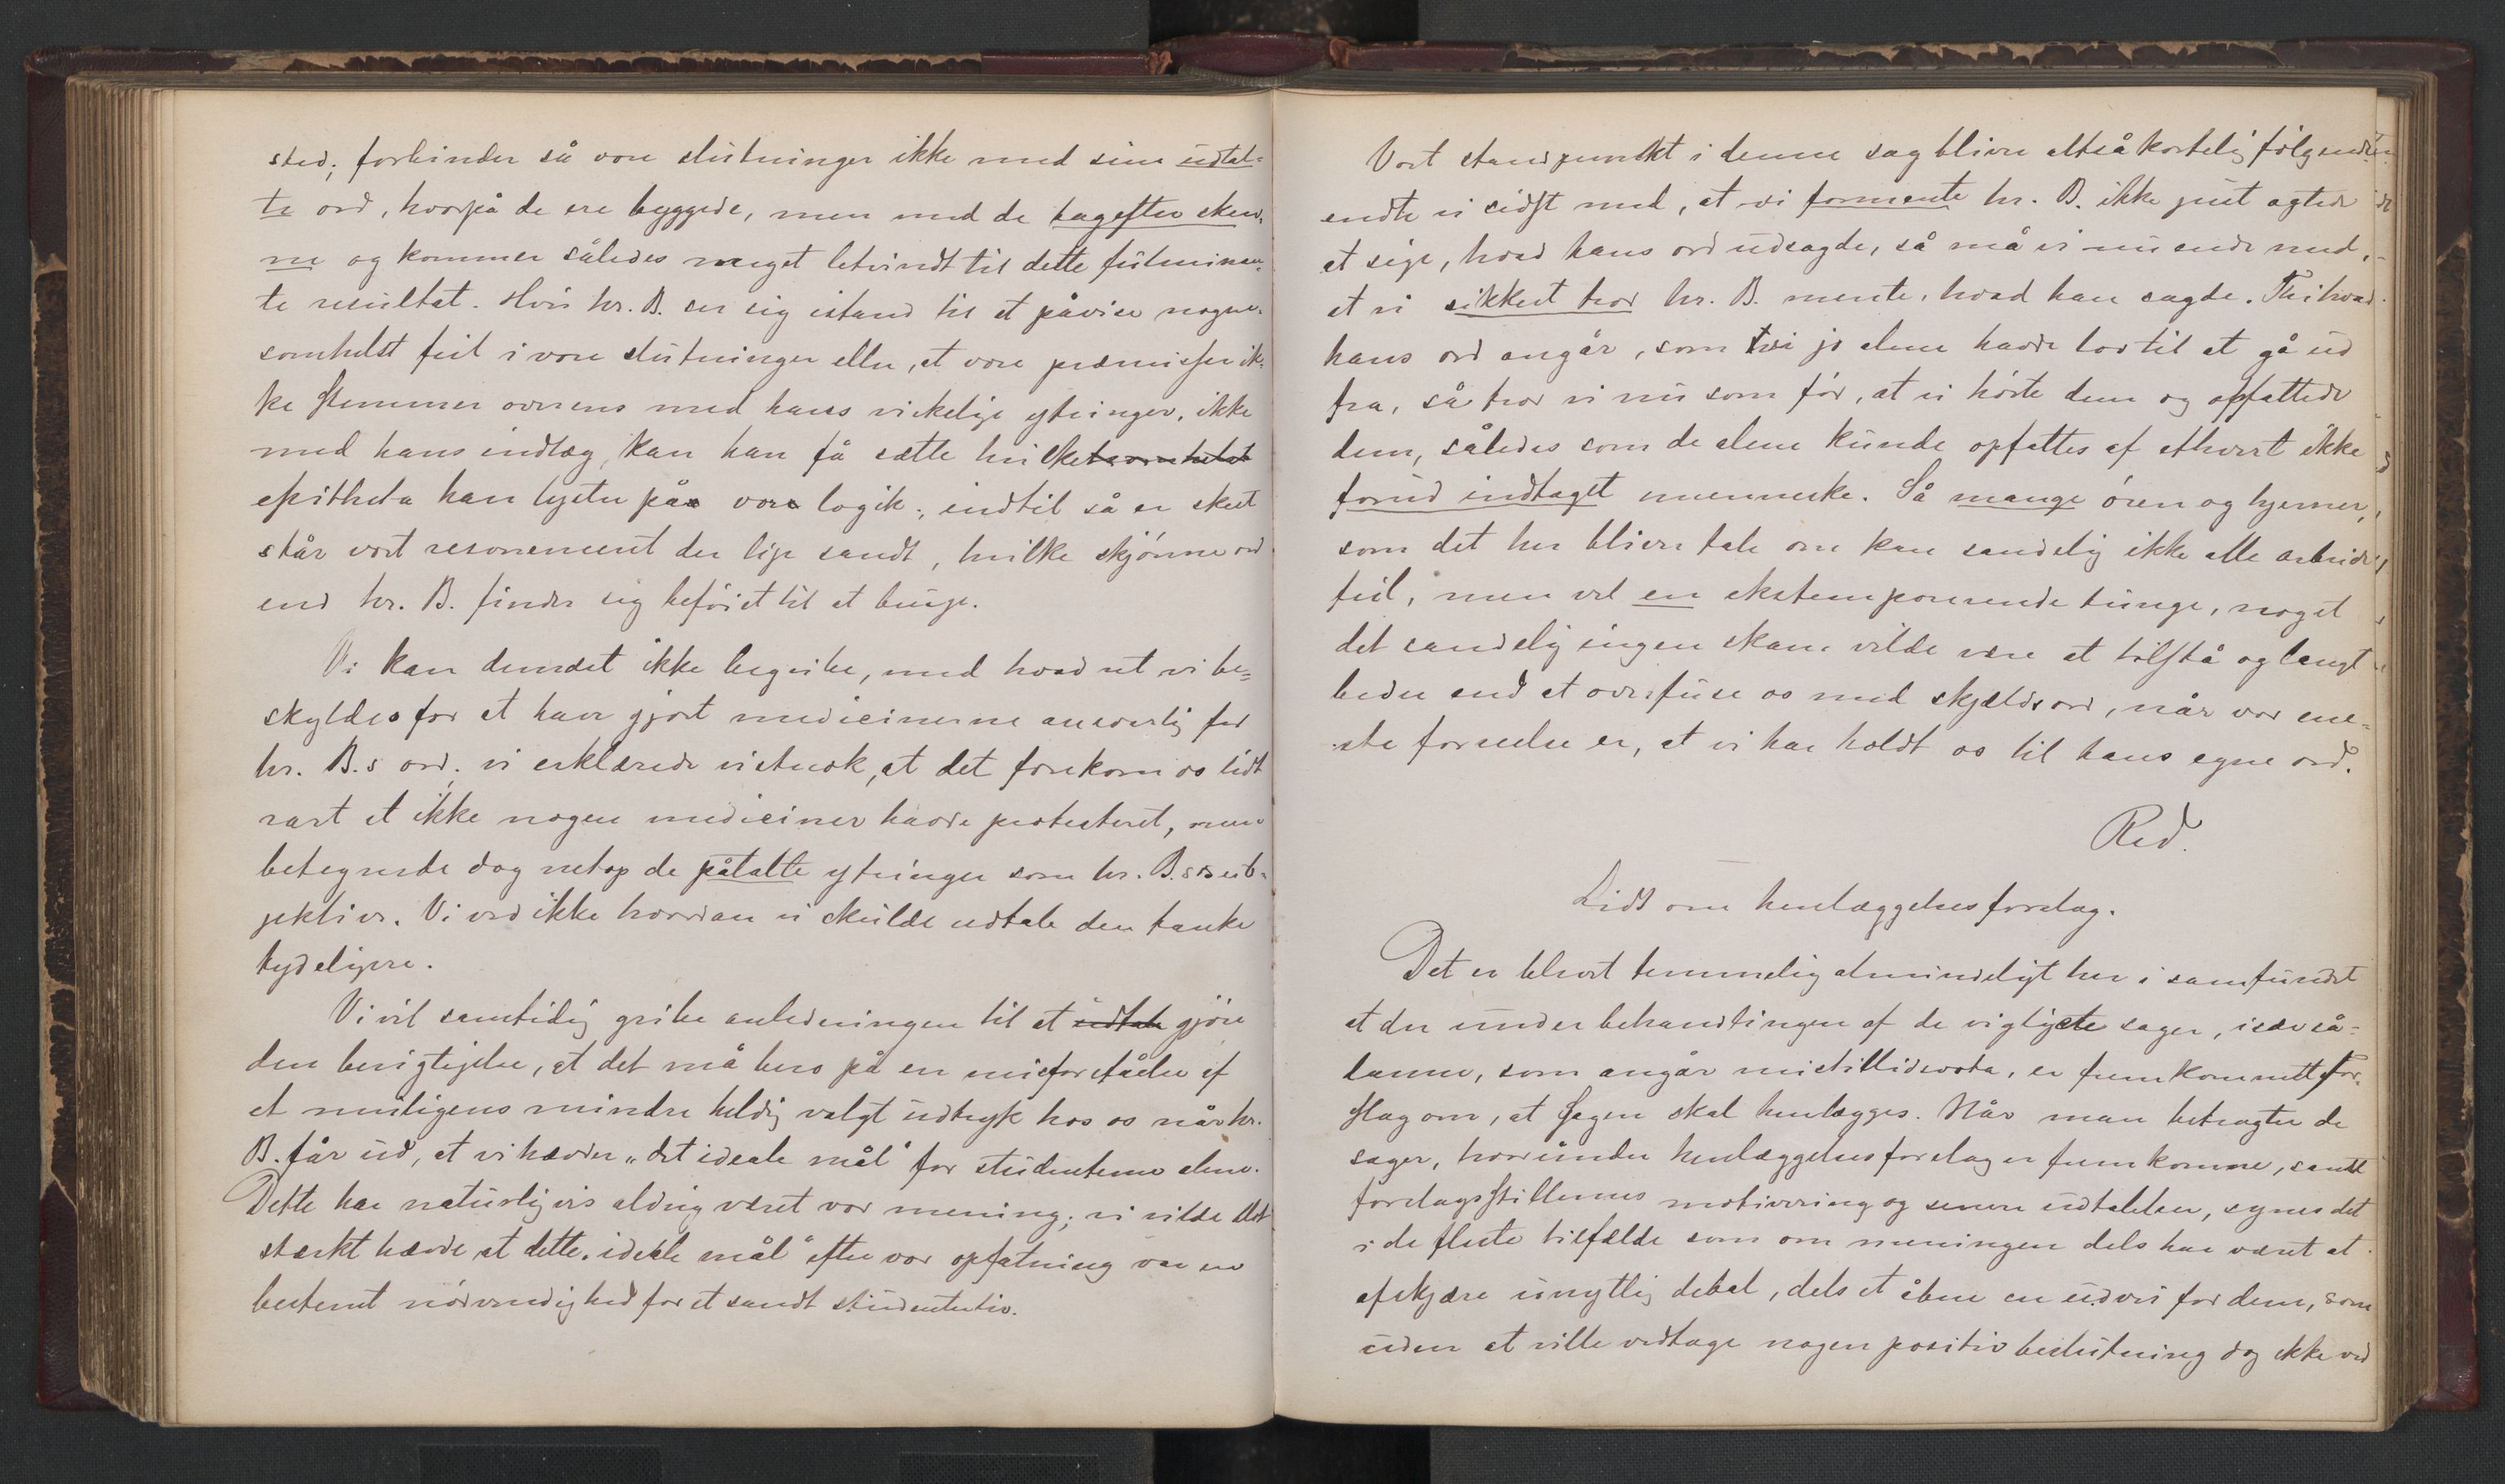 sted; forbinder så vore slutninger ikke med sine udtal-
te ord, hvorpå de ere byggede, men med de bagefter skrev-
ne og kommer således meget letvindt til dette fulminan-
te resultat. Hvis hr. B. ser sig istand til at påvise nogen-
somhelst feil i vore slutninger eller, at vore præmisser ik-
ke stemmer overens med hans virkelige ytringer, ikke
med hans indlæg, kan han få sætte hvilketsomhelst
epitheta han lyster på vor logik; indtil så er skeet
står vort resonement der lige sandt, hvilke skjønne ord
end hr. B. finder sig beføiet til at bruge.
Vi kan dernæst ikke begribe, med hvad ret vi be-
skyldes for at have gjort medicinerne ansvarlig for
hr. B.s ord; vi erklærede vistnok, at det forekom os lidt
rart at ikke nogen mediciner havde protesteret, men
betegnede dog netop de påtalte ytringer som hr. B.s sub-
jektive. Vi ved ikke hvordan vi skulde udtale den tanke
tydeligere.
Vi vil samtidig gribe anledningen til at udtale gjöre
den berigtigelse, at det må bero på en misforståelse af
et muligens mindre heldig valgt udtryk hos os når hr.
B. får ud, at vi hævder „det ideale mål“ for studenterne alene.
Dette har naturligvis aldrig været vor mening; vi vilde blot
stærkt hævde, at dette „ideale mål“ efter vor opfatning var en
bestemt nödvendighed for et sandt studenterliv.
Vort standpunkt i denne sag bliver altså kortelig følgende:
endte vi sidst med, at vi formente hr. B. ikke just agtede
at sige, hvad hans ord udsagde, så må vi nu ende med,
at vi sikkert tror hr. B. mente, hvad han sagde. Thi hvad
hans ord angår, som vi jo alene havde lov til at gå ud
fra, så tror vi nu som før, at vi hörte dem og opfattede
dem, således som de alene kunde opfattes af ethvert ikke
forud indtaget menneske. Så mange ören og hjerner,
som det her bliver tale om kan sandelig ikke alle arbeide
feil, men vel en ekstemporerende tunge, noget
det sandelig ingen skam vilde være at tilstå og langt
bedre end at overfuse os med skjældsord, når vor ene-
ste forseelse er, at vi har holdt os til hans egne ord.
Red.
Lidt om henlæggelsesforslag.
Det er blevet temmelig almindeligt her i samfundet
at der under behandlingen af de vigtigste sager, især så-
danne, som angår mistillidsvota, er fremkommet for-
slag om, at sagen skal henlægges. Når man betragter de
sager, hvorunder henlæggelsesforslag er fremkomne, samt
forslagsstillernes motivering og senere udtalelser, synes det
i de fleste tilfælde som om meningen dels har været at
afskjære unyttig debat, dels at åbne en udvei for dem, som
uden at ville vedtage nogen positiv beslutning dog ikke ved